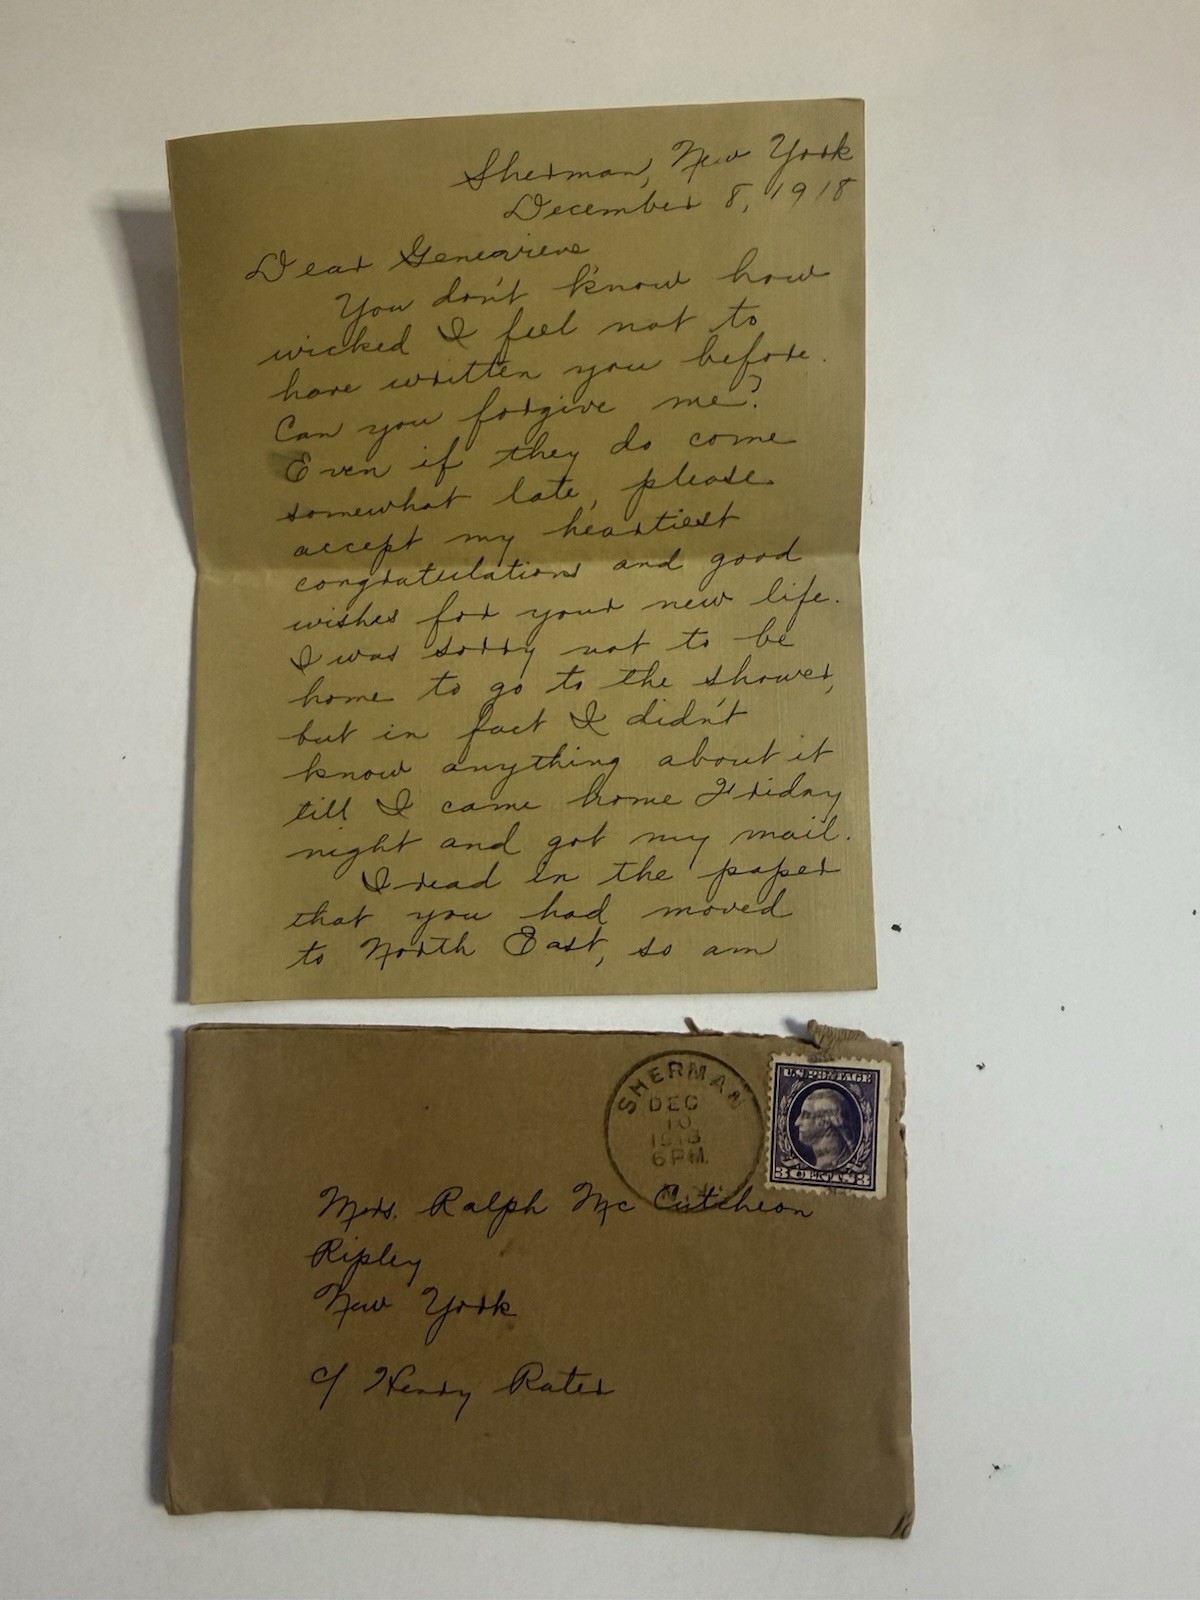 Sherman, New York
December 8, 1918
Dear Genevieve
You don't know how
wicked I feel not to
have written you before.
Can you forgive me?
Even if they do come
somewhat late, please
accept my heartiest
congratulations and good
wishes for your new life.
I was sorry not to be
home to go to the shower,
but in fact I didn't
know anything about it
till I came home Friday
night and got my mail.
I read in the paper
that you had moved
to North East, so am
SHERMAN
DEC
10
1918
6 PM.
N.Y.
U.S. POSTAGE
3 CENTS 3
Mrs. Ralph Mc Cutcheon
Ripley
New York
c/ Henry Rater